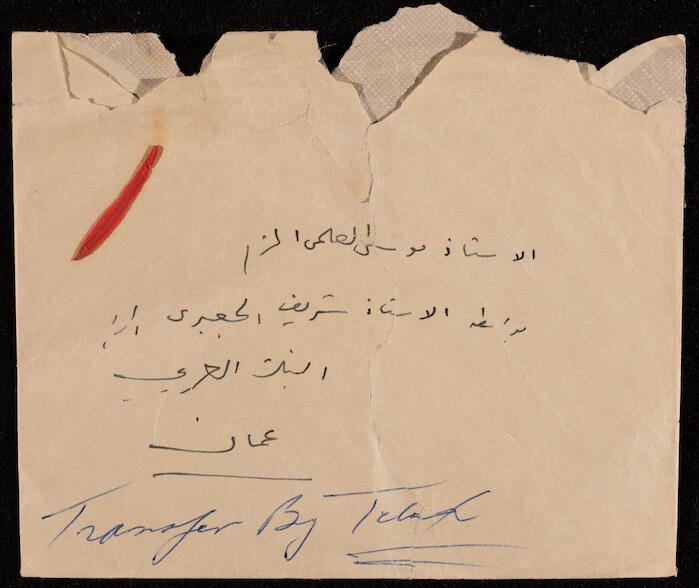 الاستاذ موسى العلمي المحترم
بواسطة الاستاذ شريف الجعبري
البنك العربي
عمان
Transfer By